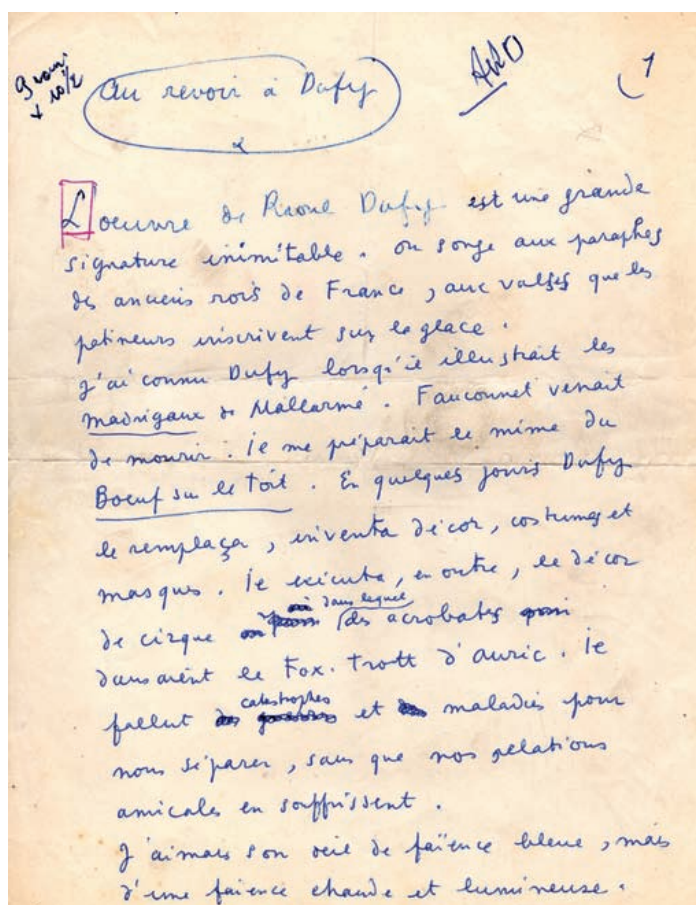 9 rom
+ 10/2
Au revoir à Dufy
1
L'oeuvre de Raoul Dufy est une grande
signature inimitable. On songe aux paraphes
des anciens rois de France, aux valses que les
patineurs inscrivent sur la glace.
J'ai connu Dufy lorsqu'il illustrait les
madrigaux de Mallarmé. Fauconnet venait
de mourir. Il me préparait le mime du
Boeuf sur le toit. En quelques jours Dufy
le remplaça, inventa décor, costumes et
masques. Il exécuta, en outre, le décor
de cirque dans lequel des acrobates
dansaient le Fox-Trott d'Auric. Il
fallut catastrophes et maladies pour
nous séparer, sans que nos relations
amicales en souffrissent.
J'aimais son oeil de faïence bleue, mais
d'une faïence chaude et lumineuse.